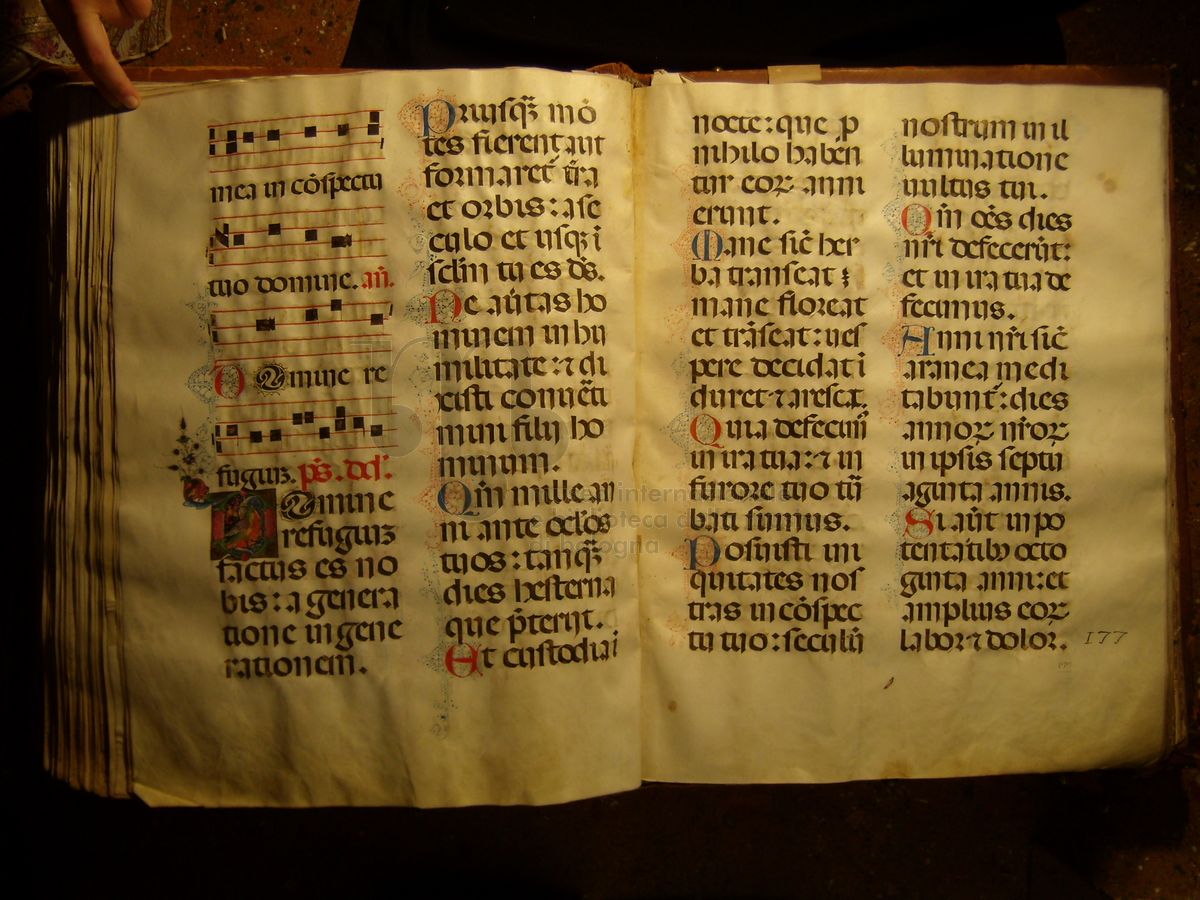 mea in cõspectu
tuo domine. añ.
Domine re
fugiuz. ps̃. dd̃.
Domine
refugiuz
factus es no
bis: a genera
tione in gene
rationem̃.
Priusq̃ mõ
tes fierent aut
formaret̃ t̃ra
et orbis: a se
culo et usqz i
sc̃lm tu es ds̃.
Ne au̾tas ho
minem in hu
militate: ⁊ di
xisti conũeti
mini filij ho
minum.
Qm̃ mille an
ni ante oc̃los
tuos: tanq̃
dies hesterna
que p̃terijt.
Et custodia i
nocte: que p
nihilo haben̾
tur eoꝝ anni
erunt.
Mane sic̃ her
ba transeat ⁊
mane floreat
et trãseat: ues
pere decidat i
duret ⁊ arescat.
Quia defecim̾
in ira tua: ⁊ in
furore tuo tũ
bati sumus.
Posuisti ini
quitates nos
tras in cõspec
tu tuo: seculũ
nostrum in il
luminatione
uultus tui.
Qm̃ oẽs dies
nr̃i defecerũt:
et in ira tua de
fecimus.
Anni nr̃i sic̃
aranea medi
tabunt̃: dies
annoꝝ nr̃oꝝ
in ipsis septu
aginta annis.
Si aũt in po
tentatib̾ octo
ginta anni: et
amplius eoꝝ
labor ⁊ dolor.
177